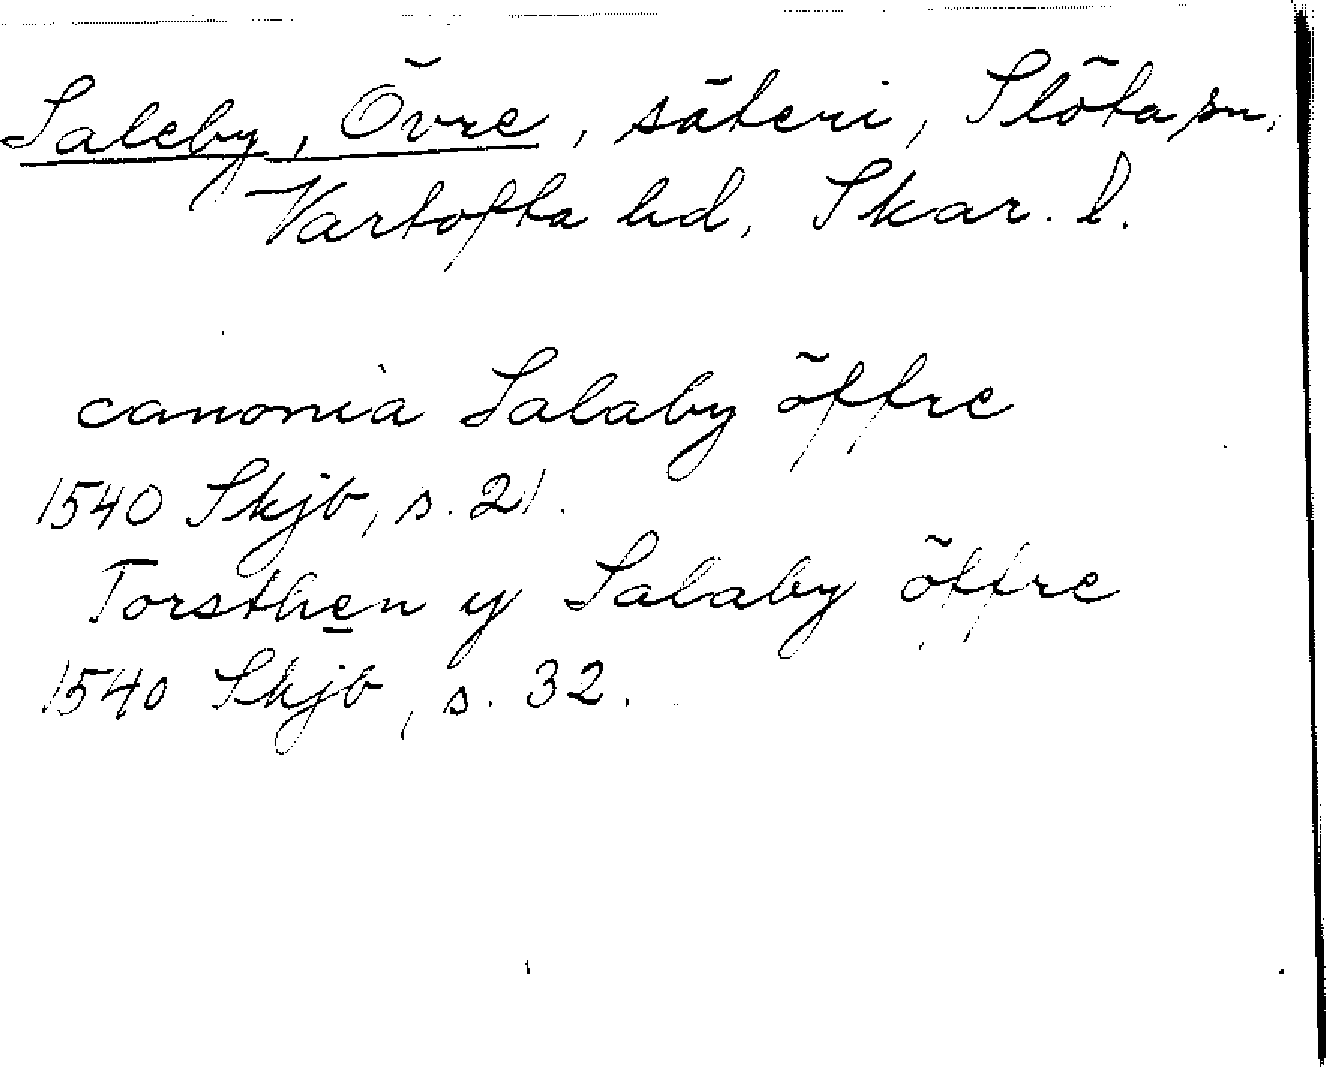 Saleby, Övre, säteri, Slöta sn,
Vartofta hd, Skar. l.
canonia Salaby öffre
1540 Skjb, s. 21.
Torsthen y Salaby öffre
1540 Skjb, s. 32.